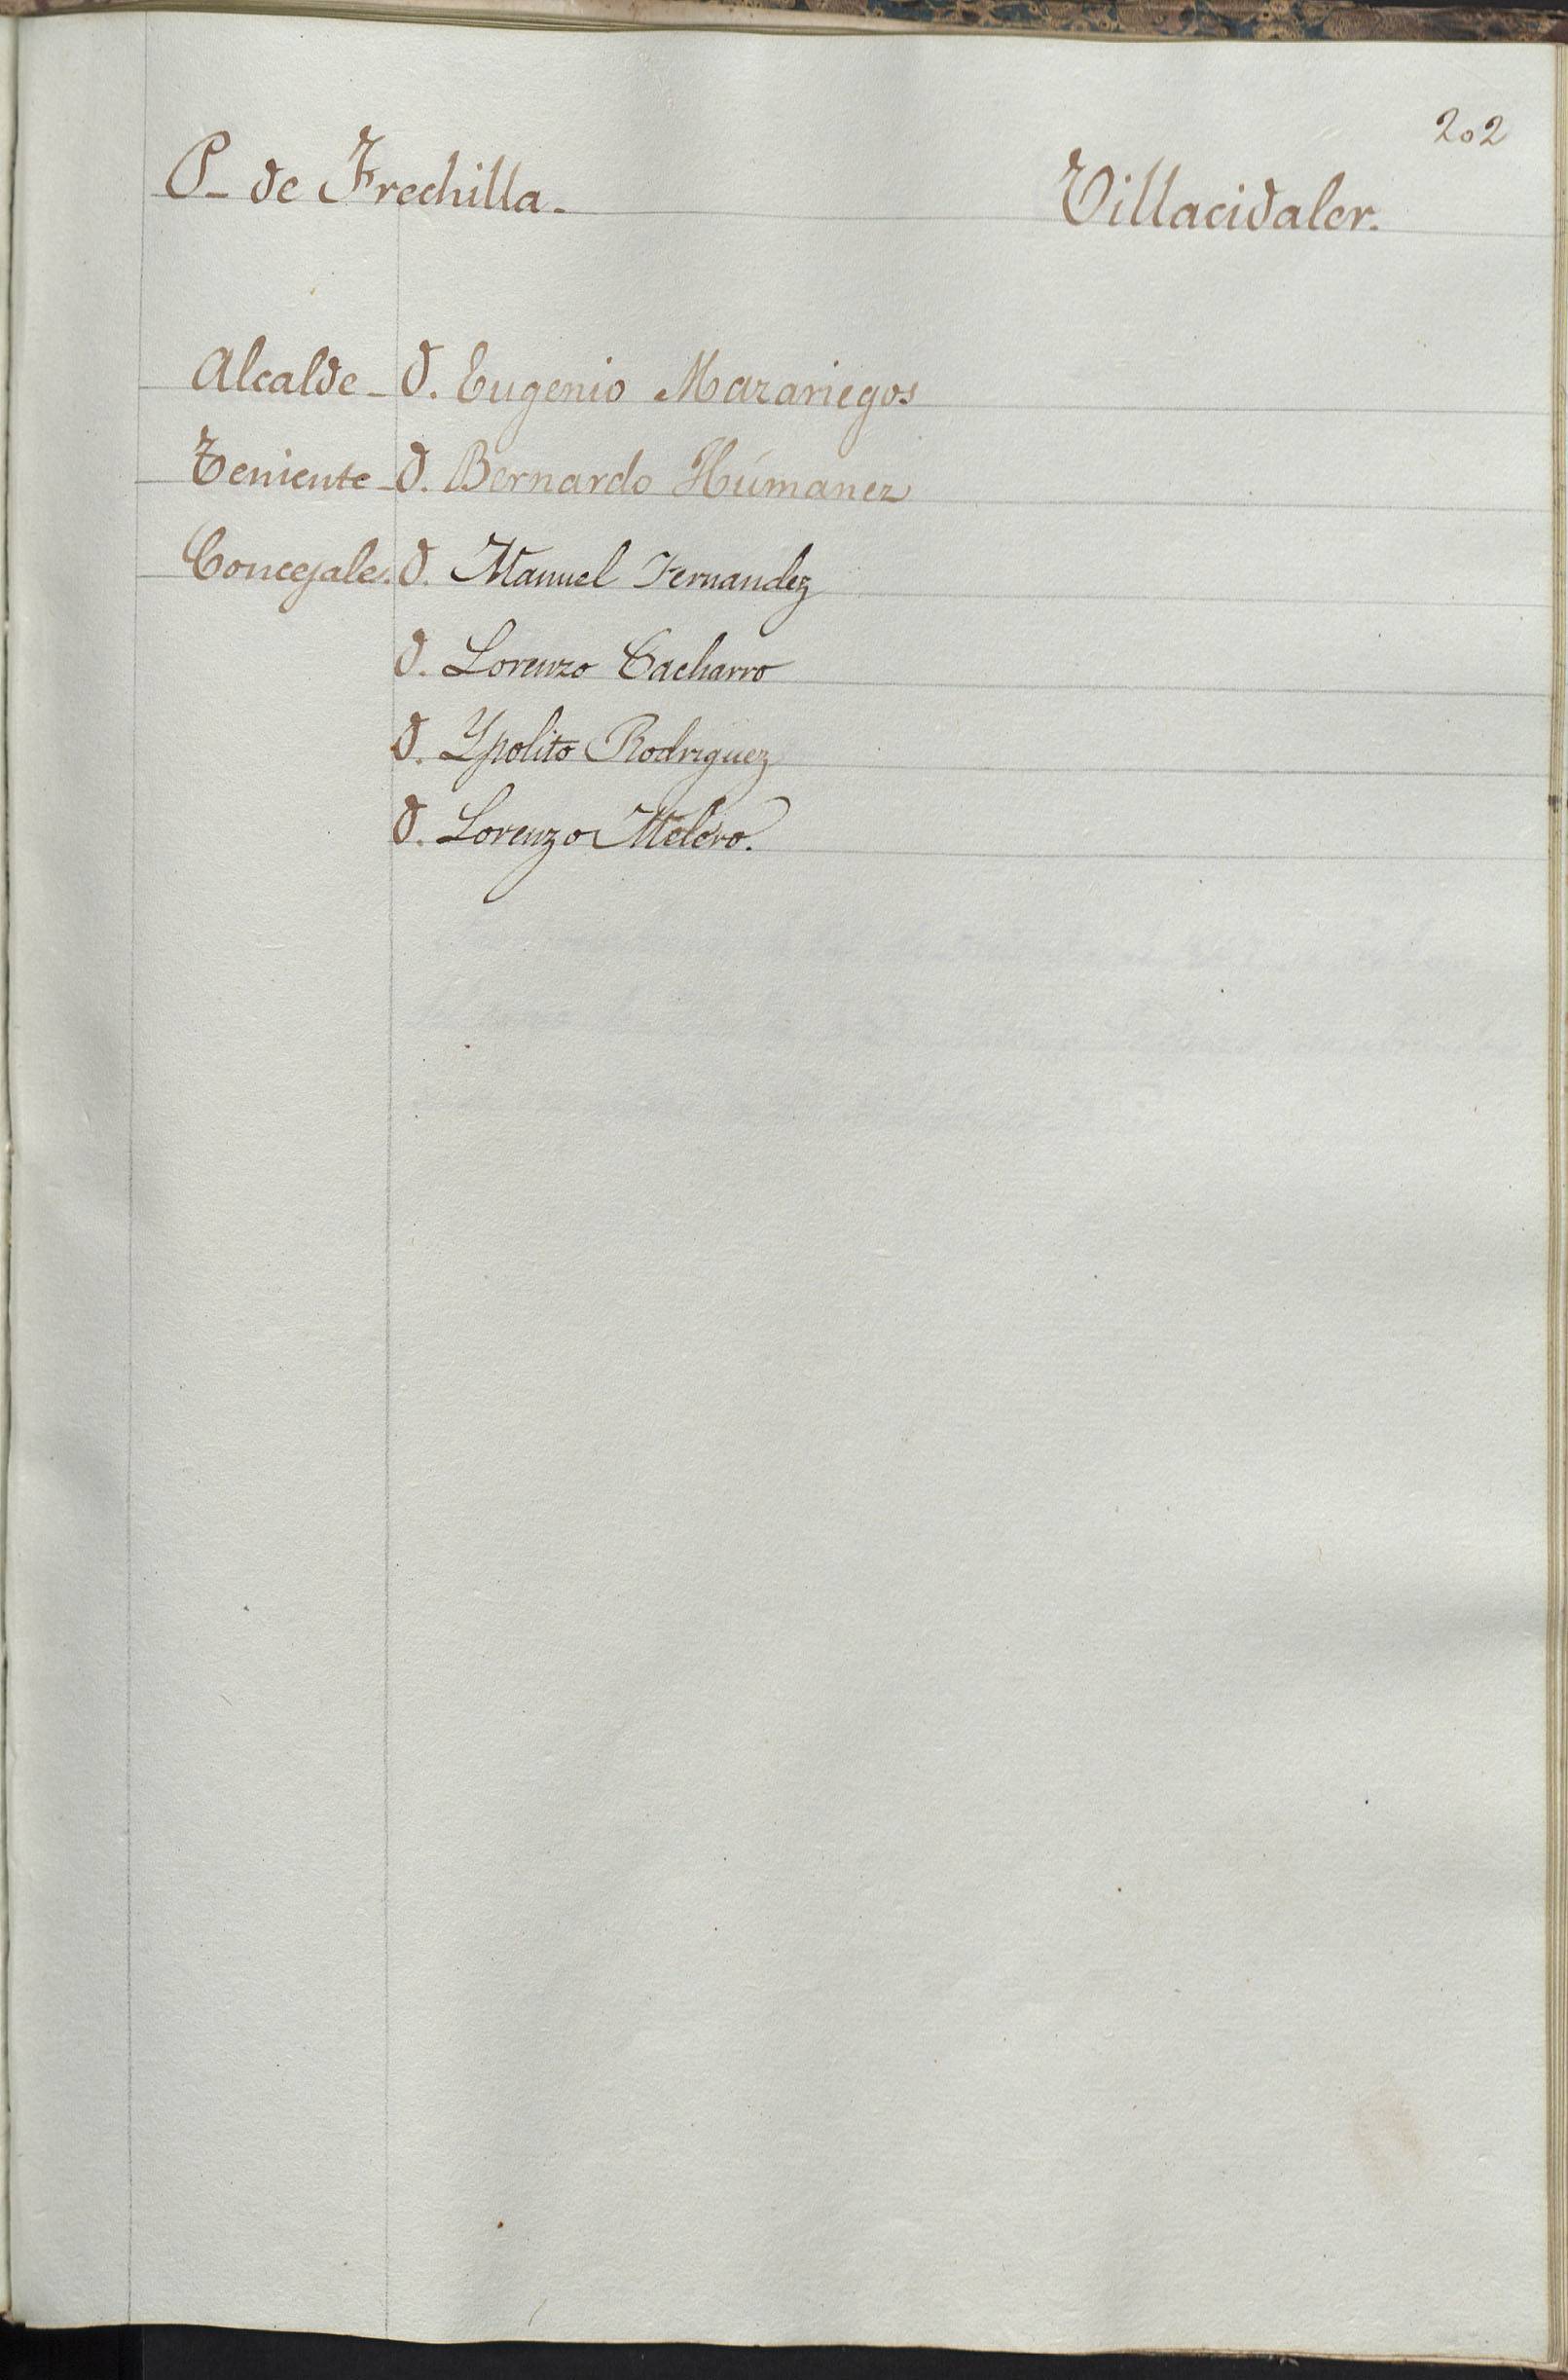 202
P. de Frechilla. Villacidaler.
Alcalde D. Eugenio Mazariegos
Teniente D. Bernardo Húmanez
Concejales. D. Manuel Fernandez
D. Lorenzo Cacharro
D. Ypolito Rodriguez
D. Lorenzo Melero.